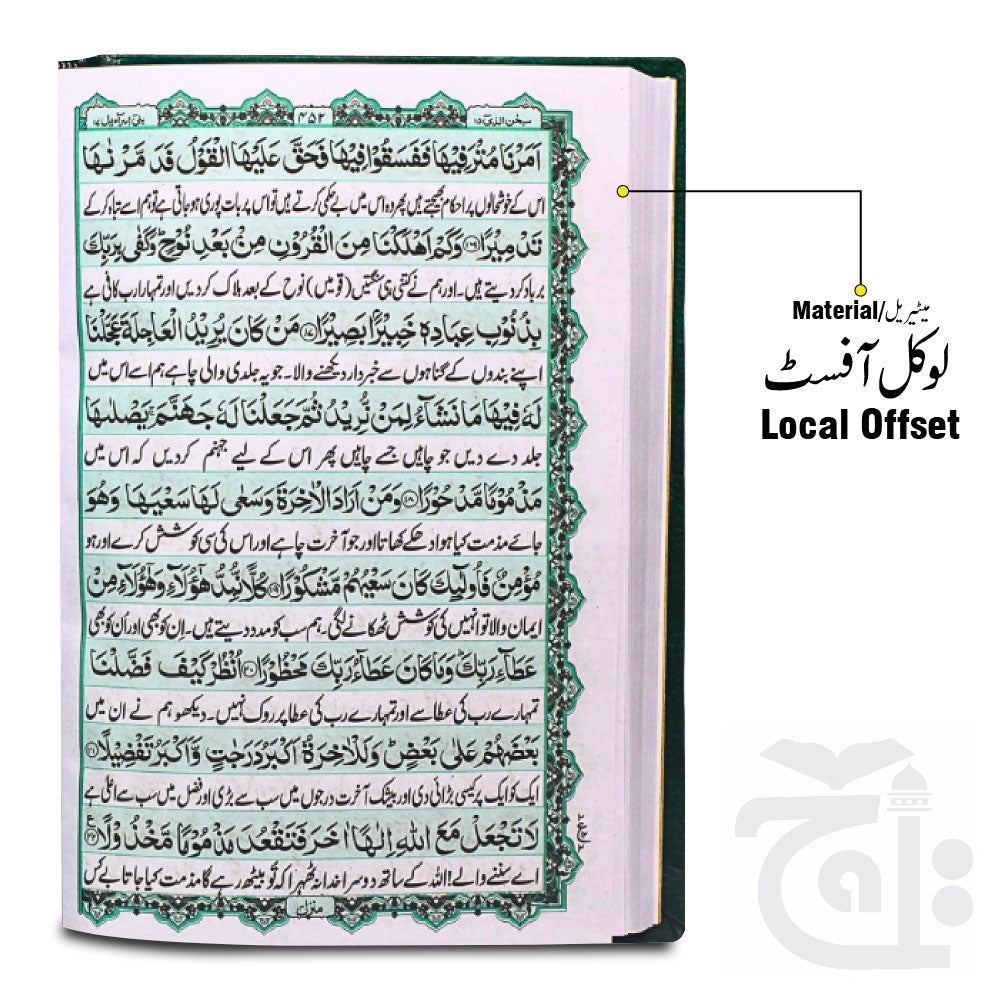 سبحن الذی ۱۵
۴۵۲
بنی اسرآءیل ۱۷
اَمَرْنَا مُتْرَفِیْهَا فَفَسَقُوْا فِیْهَا فَحَقَّ عَلَیْهَا الْقَوْلُ فَدَمَّرْنٰهَا
اس کے خوشحالوں پر احکام بھیجتے ہیں پھر وہ اس میں بے حکمی کرتے ہیں تو اس پر بات پوری ہو جاتی ہے تو ہم اسے تباہ کر کے
تَدْمِیْرًا ﴿۱۶﴾ وَكَمْ اَهْلَكْنَا مِنَ الْقُرُوْنِ مِنْۢ بَعْدِ نُوْحٍ ؕ وَكَفٰی بِرَبِّكَ
برباد کر دیتے ہیں۔ اور ہم نے کتنی ہی سنگتیں (قومیں) نوح کے بعد ہلاک کر دیں اور تمہارا رب کافی ہے
بِذُنُوْبِ عِبَادِهٖ خَبِیْرًۢا بَصِیْرًا ﴿۱۷﴾ مَنْ كَانَ یُرِیْدُ الْعَاجِلَةَ عَجَّلْنَا
اپنے بندوں کے گناہوں سے خبردار دیکھنے والا۔ جو یہ جلدی والی چاہے ہم اسے اس میں
لَهٗ فِیْهَا مَا نَشَآءُ لِمَنْ نُّرِیْدُ ثُمَّ جَعَلْنَا لَهٗ جَهَنَّمَ ۚ یَصْلٰىهَا
جلد دے دیں جو چاہیں جسے چاہیں پھر اس کے لیے جہنم کر دیں کہ اس میں
مَذْمُوْمًا مَّدْحُوْرًا ﴿۱۸﴾ وَمَنْ اَرَادَ الْاٰخِرَةَ وَسَعٰی لَهَا سَعْیَهَا وَهُوَ
جائے مذمت کیا ہوا دھکے کھاتا اور جو آخرت چاہے اور اس کی سی کوشش کرے اور ہو
مُؤْمِنٌ فَاُولٰٓىِٕكَ كَانَ سَعْیُهُمْ مَّشْكُوْرًا ﴿۱۹﴾ كُلًّا نُّمِدُّ هٰۤؤُلَآءِ وَهٰۤؤُلَآءِ مِنْ
ایمان والا تو انہیں کی کوشش ٹھکانے لگی۔ ہم سب کو مدد دیتے ہیں۔ اِن کو بھی اور اُن کو بھی
عَطَآءِ رَبِّكَ ؕ وَمَا كَانَ عَطَآءُ رَبِّكَ مَحْظُوْرًا ﴿۲۰﴾ اُنْظُرْ كَیْفَ فَضَّلْنَا
تمہارے رب کی عطا سے اور تمہارے رب کی عطا پر روک نہیں۔ دیکھو ہم نے ان میں
بَعْضَهُمْ عَلٰی بَعْضٍ ؕ وَلَلْاٰخِرَةُ اَكْبَرُ دَرَجٰتٍ وَّاَكْبَرُ تَفْضِیْلًا ﴿۲۱﴾
ایک کو ایک پر کیسی بڑائی دی اور بیشک آخرت درجوں میں سب سے بڑی اور فضل میں سب سے اعلٰی ہے
لَا تَجْعَلْ مَعَ اللّٰهِ اِلٰهًا اٰخَرَ فَتَقْعُدَ مَذْمُوْمًا مَّخْذُوْلًا ﴿۲۲﴾ ع
اے سننے والے! اللہ کے ساتھ دوسرا خدا نہ ٹھہرا کہ تو بیٹھ رہے گا مذمت کیا جاتا بے کس
منزل ۴
Material/میٹیریل
لوکل آفسٹ
Local Offset
تاج